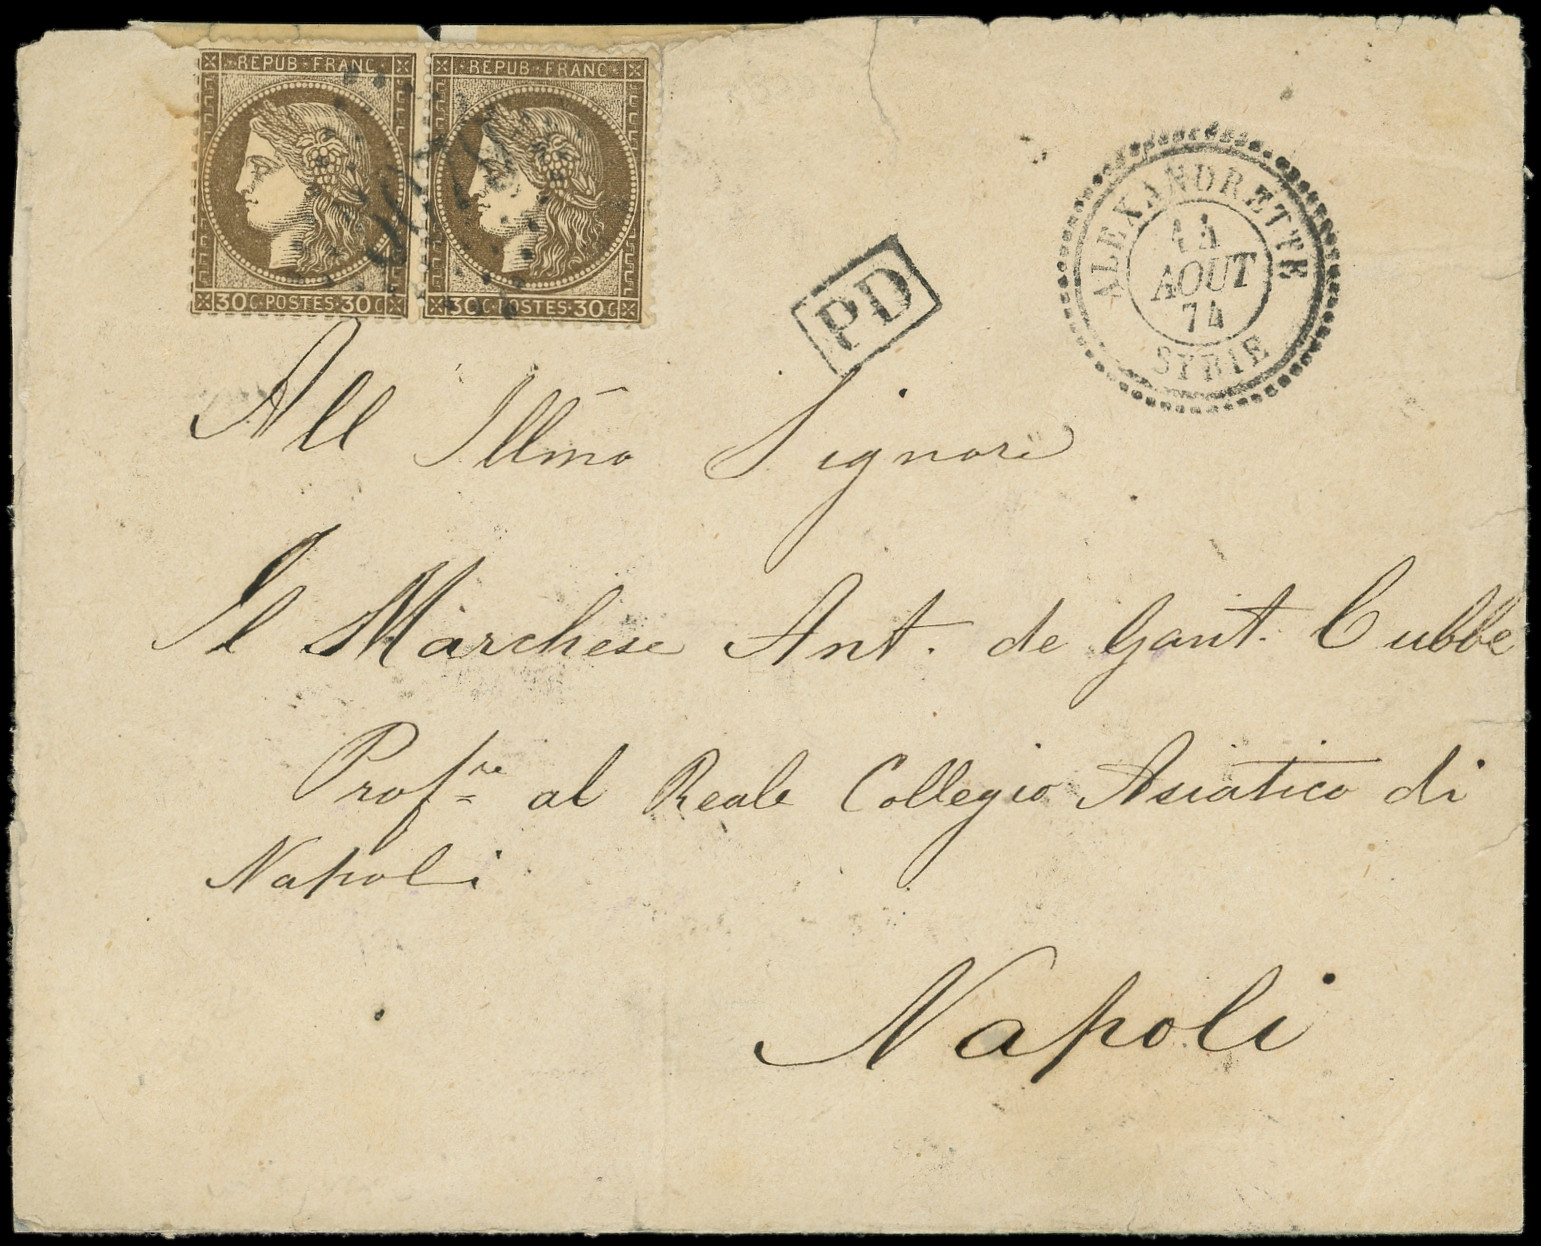 REPUB·FRANC
30C·POSTES·30C
REPUB·FRANC
30C·POSTES·30C
PD
ALEXANDRETTE
14
AOUT
74
SYRIE
All Illmo Signore
Il Marchese Ant. de Gant. Cubbe
Profre al Reale Collegio Asiatico di
Napoli
Napoli